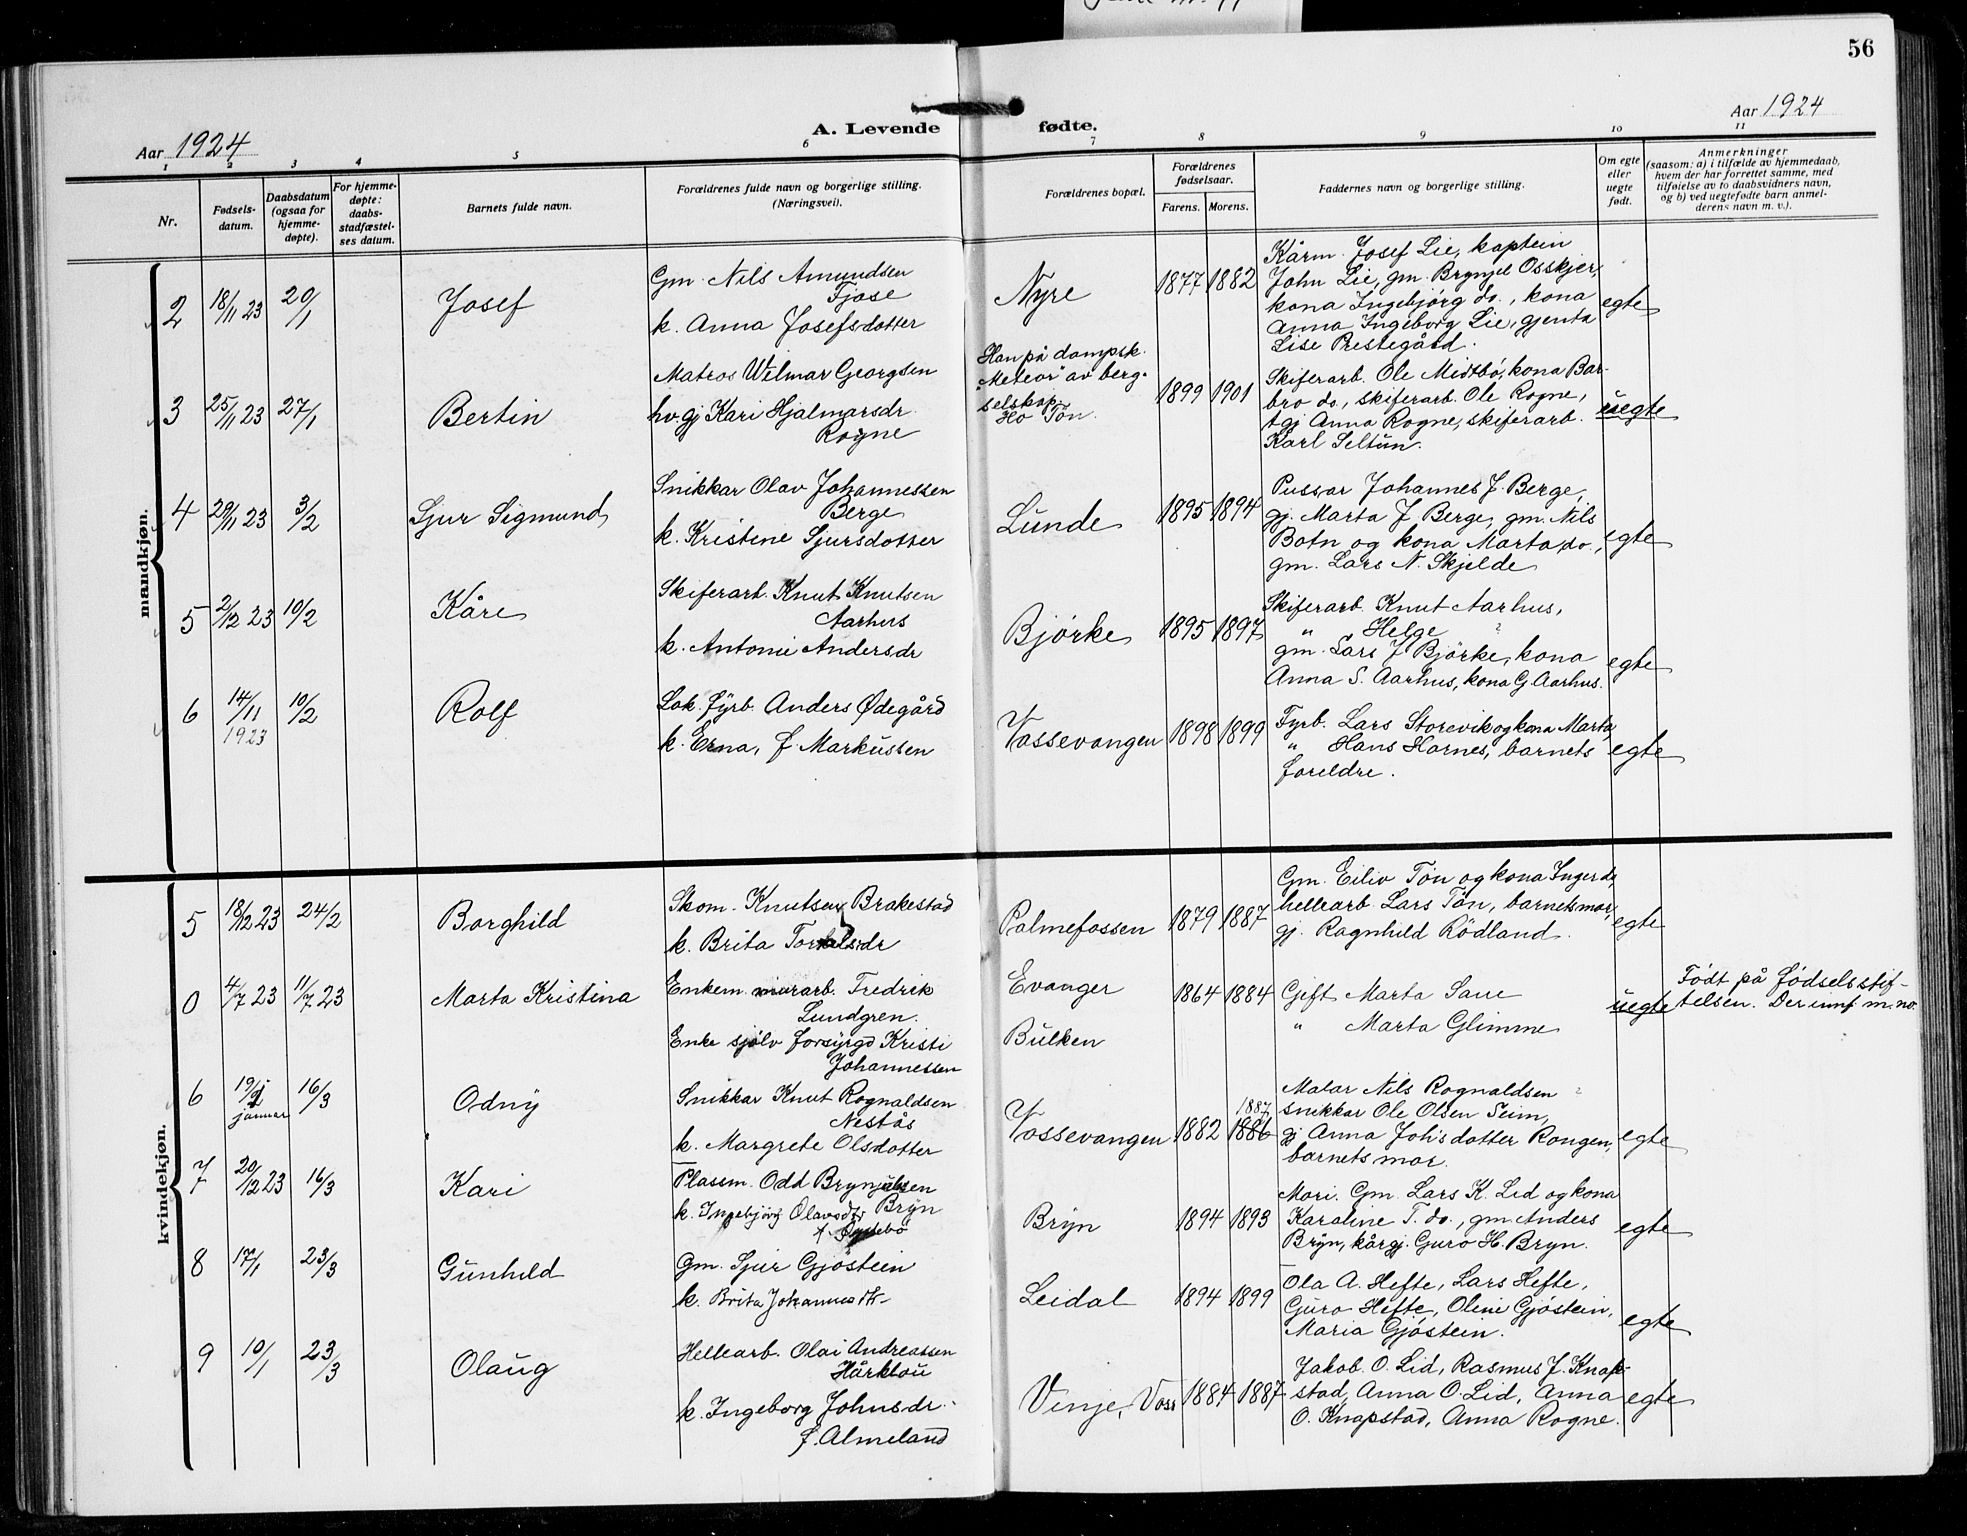 56
Aar 1924
A. Levende fødte.
Aar 1924
1 2 3 4 5 6 7 8 9 10 11
Nr.
Fødsels-
datum.
Daabsdatum
(ogsaa for
hjemme-
døpte).
For hjemme-
døpte:
daabs-
stadfæstel-
ses datum.
Barnets fulde navn.
Forældrenes fulde navn og borgerlige stilling.
(Næringsvei).
Forældrenes bopæl.
Forældrenes
fødselsaar.
Farens. Morens.
Faddernes navn og borgerlige stilling.
Om egte
eller
uegte
født.
Anmerkninger
(saasom: a) i tilfælde av hjemmedaab,
hvem der har forrettet samme, med
tilføielse av to daabsvidners navn,
og b) ved uegtefødte barn anmel-
derens navn m. v.).
mandkjøn.
2 18/11 23 20/1 Josef
Gm. Nils Amundsen
Fjose
k. Anna Josefsdotter
Nyre 1877 1882
Kårm. Josef Lie, kaptein
John Lie, gm. Brynjel Osskjer,
kona Ingebjörg do., kona
Anna Ingeborg Lie, gjenta
Lise Prestegård.
egte
3 25/11 23 27/1 Bertin
Matros Wilmar Georgsen
hv. gj Kari Hjalmarsdr.
Rogne
Han på dampsk.
"Meteor" av berg.
selskap
Ho Tön.
1899 1901
Skiferarb. Ole Midtbö, kona Bar-
bro do., skiferarb. Ole Rogne,
tgj Anna Rogne, skiferarb.
Karl Seltun.
uegte
4 29/11 23 3/2 Sjur Sigmund
Snikkar Olav Johannessen
Berge
k. Kristine Sjursdotter
Lunde 1895 1894
Pussar Johannes J. Berge,
gj. Marta J Berge, gm. Nils
Botn og kona Marta do.,
gm. Lars N. Skjelde
egte
5 2/12 23 10/2 Kåre
Skiferarb. Knut Knutsen
Aarhus
k. Antonie Andersdr
Björke 1895 1897
Skiferarb. Knut Aarhus,
" Helge "
gm. Lars J Björke, kona
Anna S. Aarhus, kona G. Aarhus.
egte
6 14/11 1923 10/2 Rolf
Lok. fyrb. Anders Ødegård
k. Erna, f. Markussen
Vossevangen 1898 1899
Fyrb. Lars Storevik og kona Marta,
" Hans Hornes, barnets
foreldre.
egte
kvindekjøn.
5 18/12 23 24/2 Borghild
Skom. Knutsen Brakestad
k. Brita
Palmefossen 1879 1887
Gm. Eiliv Tön og kona Inger do,
hellearb. Lars Tön, barnets mor,
gj. Ragnhild Rödland.
egte
0 4/7 23 11/7 23 Marta Kristina
Enkem. murarb. Fredrik
Lundgren.
Enke sjölv forsyrgd Kristi
Johannessen
Evanger
Bulken
1864 1884
Gift Marta Saue
" Marta Glimme
uegte
Födt på födselsstif-
telsen. Der innf. m. no.
6 19/1 januar 16/3 Odny
Snikkar Knut Rognaldsen
Nestås
k. Margrete Olsdotter
Vossevangen 1882 1886 1887
Malar Nils Rognaldsen
snikkar Ole Olsen Seim,
gj Anna Johsdotter Rongen,
barnets mor.
egte
7 20/12 23 16/3 Kari
Plassm. Odd Brynjulvsen
Bryn
k. Ingebjörg Olavsdtr
f. Øystebö
Bryn 1894 1893
Mori. Gm. Lars K. Lid og kona
Karoline T. do., gm. Anders
Bryn, kårgj. Guro H. Bryn.
egte
8 17/1 23/3 Gunhild
Gm. Sjur Gjöstein
k. Brita Johannesdtr
Leidal 1894 1899
Ola A. Hefte, Lars Hefte,
Guro Hefte, Oline Gjöstein,
Maria Gjöstein.
egte
9 10/1 23/3 Olaug
Hellearb. Olai Andreassen
Hårklou
k. Ingeborg Johnsdr.
f. Almeland
Vinje, Voss 1884 1887
Jakob O. Lid, Rasmus J. Knap-
stad, Anna O. Lid, Anna
O. Knapstad, Anna Rogne.
egte